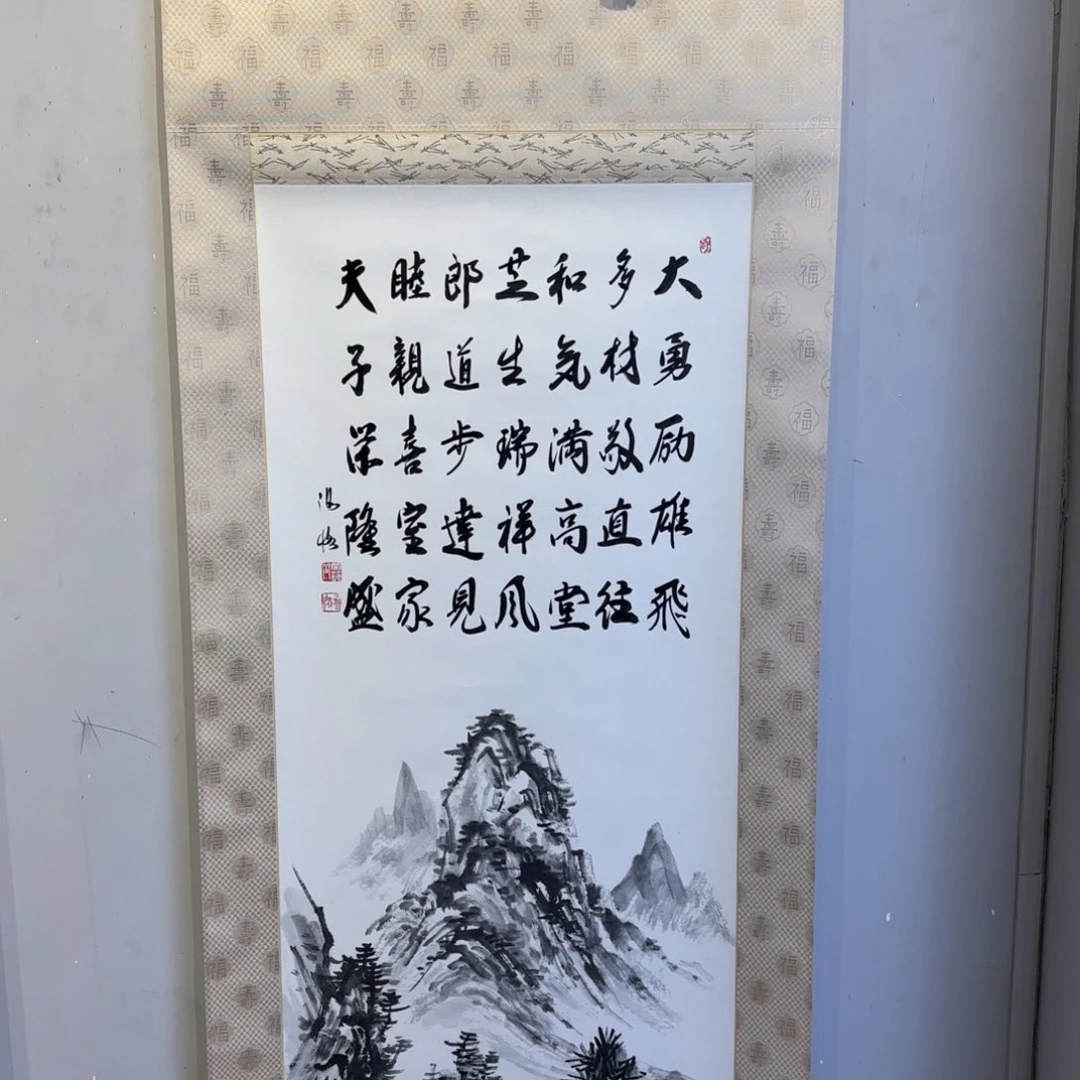 大勇励雄飛
多材敬直往
和気満高堂
芝生瑞祥風
郎道步達見
睦親喜室家
夫子栄隆盛